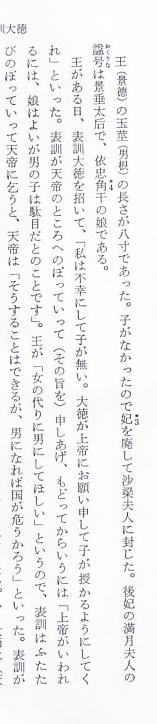 訓大徳
王（景徳）の玉茎（男根）の長さが八寸であった。子がなかったので妃を廃して沙梁夫人に封じた。後妃の満月夫人の
諡号は景垂太后で、依忠角干の娘である。
王がある日、表訓大徳を招いて、「私は不幸にして子が無い。大徳が上帝にお願い申して子が授かるようにしてく
れ」といった。表訓が天帝のところへのぼっていって（その旨を）申しあげ、もどってからいうには「上帝がいわれ
るには、娘はよいが男の子は駄目だとのことです」。王が「女の代りに男にしてほしい」というので、表訓はふたた
びのぼっていって天帝に乞うと、天帝は「そうすることはできるが、男になれば国が危うかろう」といった。表訓が